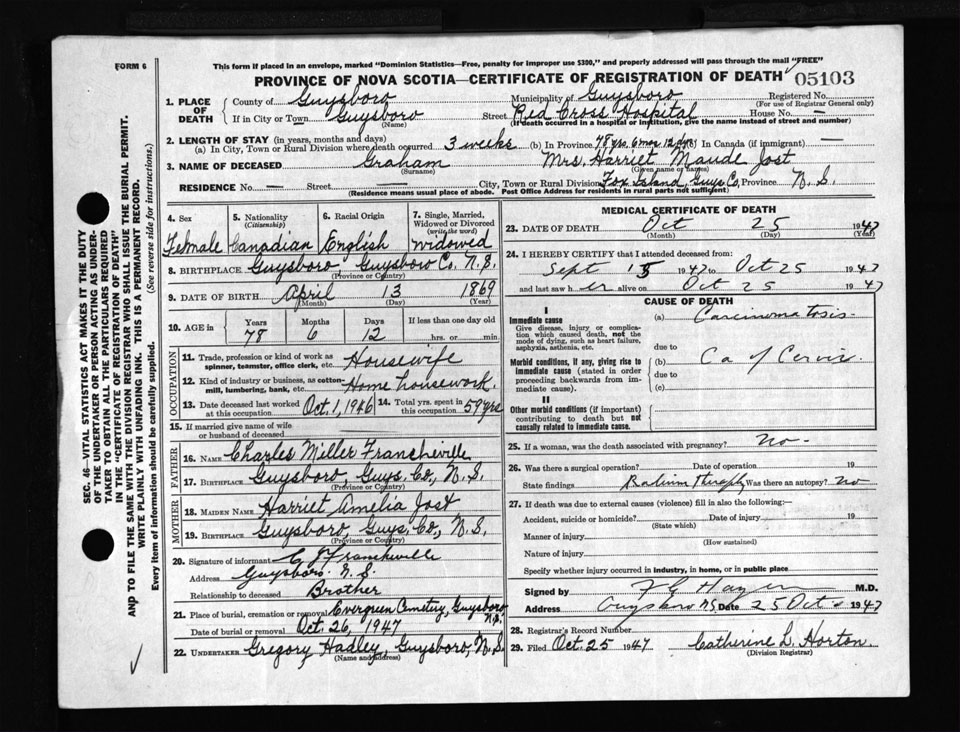 FORM 6
This form if placed in an envelope, marked "Dominion Statistics—Free, penalty for improper use $300," and properly addressed will pass through the mail "FREE"
PROVINCE OF NOVA SCOTIA—CERTIFICATE OF REGISTRATION OF DEATH 05103
1. PLACE OF DEATH
County of Guysboro Municipality of Guysboro Registered No.
(For use of Registrar General only)
If in City or Town Guysboro Street Red Cross Hospital House No. —
(Name) (If death occurred in a hospital or institution, give the name instead of street and number)
2. LENGTH OF STAY (in years, months and days)
(a) In City, Town or Rural Division where death occurred 3 weeks (b) In Province 78 yrs. 6 mos. 12 dys (c) In Canada (if immigrant) —
3. NAME OF DECEASED Graham Mrs. Harriet Maude Jost
(Surname) (Given name or names)
RESIDENCE No. — Street — City, Town or Rural Division Fox Island, Guys. Co. Province N. S.
(Residence means usual place of abode. Post Office Address for residents in rural parts not sufficient)
4. Sex
Female
5. Nationality
(Citizenship)
Canadian
6. Racial Origin
English
7. Single, Married, Widowed or Divorced
(write the word)
Widowed
8. BIRTHPLACE Guysboro Guysboro Co. N. S.
(Province or Country)
9. DATE OF BIRTH April 13 1869
(Month) (Day) (Year)
10. AGE in
Years Months Days If less than one day old
78 6 12 hrs. or min.
OCCUPATION
11. Trade, profession or kind of work as
spinner, teamster, office clerk, etc. Housewife
12. Kind of industry or business, as cotton-
mill, lumbering, bank, etc. Home housework.
13. Date deceased last worked at this occupation Oct. 1, 1946
14. Total yrs. spent in this occupation 59 yrs
15. If married give name of wife
or husband of deceased
FATHER
16. NAME Charles Miller Francheville
17. BIRTHPLACE Guysboro, Guys. Co., N. S.
(Province or Country)
MOTHER
18. MAIDEN NAME Harriet Amelia Jost
19. BIRTHPLACE Guysboro, Guys. Co., N. S.
(Province or Country)
20. Signature of informant C J Francheville
Address Guysboro. N. S.
Relationship to deceased Brother
21. Place of burial, cremation or removal Evergreen Cemetery, Guysboro N.S.
Date of burial or removal Oct. 26, 1947
22. UNDERTAKER Gregory Hadley, Guysboro, N. S.
(Name and address)
MEDICAL CERTIFICATE OF DEATH
23. DATE OF DEATH Oct 25 1947
(Month) (Day) (Year)
24. I HEREBY CERTIFY that I attended deceased from
Sept 1947 to Oct 25 1947
and last saw her alive on Oct 25 1947
CAUSE OF DEATH
I
Immediate cause
Give disease, injury or complication which caused death, not the mode of dying, such as heart failure, asphyxia, asthenia, etc.
(a) Carcinomatosis
due to
Morbid conditions, if any, giving rise to immediate cause (stated in order proceeding backwards from immediate cause).
(b) Ca of Cervix.
due to
(c)
II
Other morbid conditions (if important) contributing to death but not causally related to immediate cause.
25. If a woman, was the death associated with pregnancy? No -
26. Was there a surgical operation? Date of operation 19
State findings Radium therapy Was there an autopsy? No
27. If death was due to external causes (violence) fill in also the following:
Accident, suicide or homicide? Date of injury 19
(State which)
Manner of injury
(How sustained)
Nature of injury
Specify whether injury occurred in industry, in home, or in public place
Signed by M.D.
Address Guysboro NS Date 25 Oct 1947
28. Registrar's Record Number
29. Filed Oct. 25 1947 Catherine L. Horton.
(Division Registrar)
SEC. 46—VITAL STATISTICS ACT MAKES IT THE DUTY
OF THE UNDERTAKER OR PERSON ACTING AS UNDER-
TAKER TO OBTAIN ALL THE PARTICULARS REQUIRED
IN THE "CERTIFICATE OF REGISTRATION OF DEATH"
AND TO FILE THE SAME WITH THE DIVISION REGISTRAR WHO SHALL ISSUE THE BURIAL PERMIT.
WRITE PLAINLY WITH UNFADING INK. THIS IS A PERMANENT RECORD.
Every item of information should be carefully supplied. (See reverse side for instructions.)